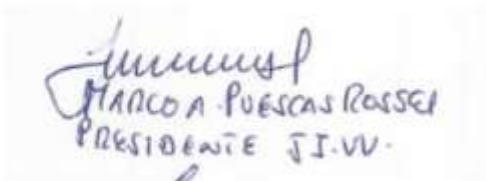 MARCO A. PUESCAS ROSSEL
PRESIDENTE JJ.VV.